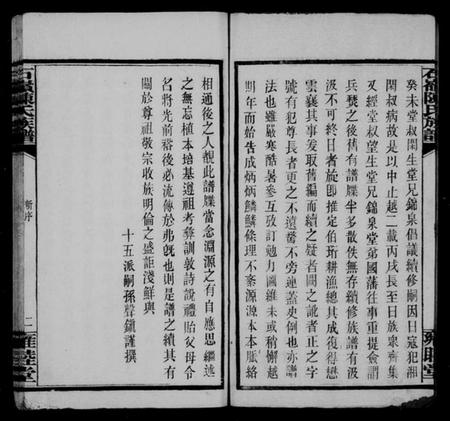 石嶺陳氏族譜
雍睦堂
癸未堂叔閏生堂兄錦泉倡議續修嗣因日寇犯湘
閏叔病故是以中止越二載丙戌長至日族衆齊集
又經堂叔望生堂兄錦泉堂第國藩往事重提僉謂
兵燹之後舊有譜牒半多散佚無存續修族譜有汲
汲不可終日者旋即推定伯珩耕漁總其成復得懋
雲襄其事爰取舊編而續之疑者闕之訛者正之字
號有犯尊長者更之不遺嘗不旁連蓋史例也亦譜
法也雖嚴寒酷暑參互攷訂勉力圖維未或稍懈越
期年而始告成炳炳麟麟條理不紊源源本本脈絡
相通後之人覩此譜牒當念淵源之有自應思繼述
之無忘植本培基遵祖考彝訓敦詩說禮貽父母令
名將先前裕後必流傳於弗旣也則是譜之續其有
關於尊祖敬宗收族明倫之盛詎淺鮮與
十五派嗣孫聲鎮謹撰
石嶺陳氏族譜
新序
二
雍睦堂